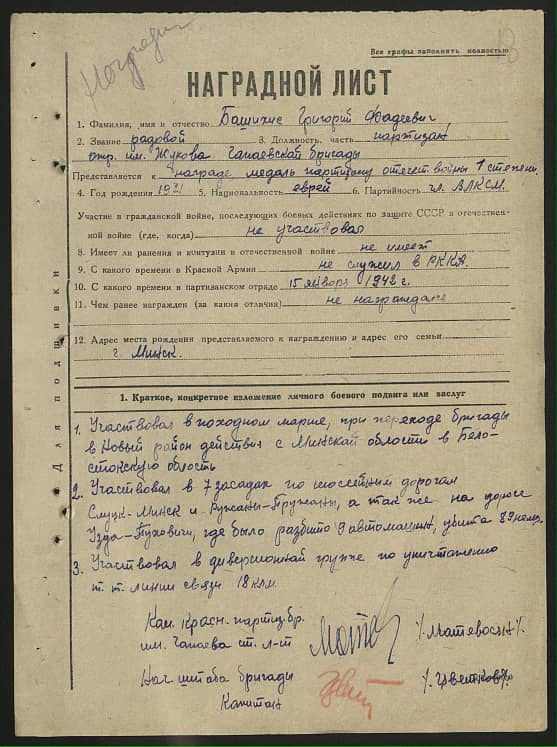 Наградить
Все графы заполнять полностью
НАГРАДНОЙ ЛИСТ
1. Фамилия, имя и отчество Башихис Григорий Фадеевич
2. Звание рядовой 3. Должность, часть партизан
отр. им. Жукова Чапаевской бригады
Представляется к награде медаль партизану отечест. войны 1 степени.
4. Год рождения 1921 5. Национальность еврей 6. Партийность чл. ВЛКСМ.
Участие в гражданской войне, последующих боевых действиях по защите СССР и отечествен-
ной войне (где, когда) не участвовал
8. Имеет ли ранения и контузии в отечественной войне не имеет
9. С какого времени в Красной Армии не служил в РККА.
10. С какого времени в партизанском отряде 15 января 1942 г.
11. Чем ранее награжден (за какия отличия) не награждался
12. Адрес места рождения представляемого к награждению и адрес его семьи
г. Минск.
Для подшивки
1. Краткое, конкретное изложение личного боевого подвига или заслуг
1. Участвовал в походном марше, при переходе бригады
в Новый район действия с Минской области в Бело-
стокскую область
2. Участвовал в 7 засадах по шоссейным дорогам
Слуцк-Минск и Ружаны-Пружаны, а так же на дороге
Узда-Пуховичи, где было разбито 9 автомашин, убита 89 немц.
3. Участвовал в диверсионной группе по уничтожению
т.т. линии связи 18 клм.
Ком. Красн. партиз. бр.
им. Чапаева ст. л-т /Матевосян/
Нач. штаба бригады /Цветков/
Капитан